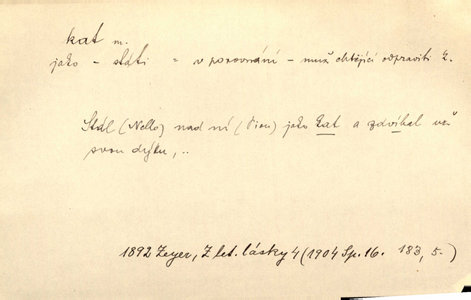 kat m.
jako - státi = v porovnání - muž chtějící odpraviti ž.
Stál (Nello) nad ní (Piou) jako kat a zdvíhal už
svou dýku, ..
1892 Zeyer, Z let. lásky 4 (1904 Sp. 16. 183, 5-)